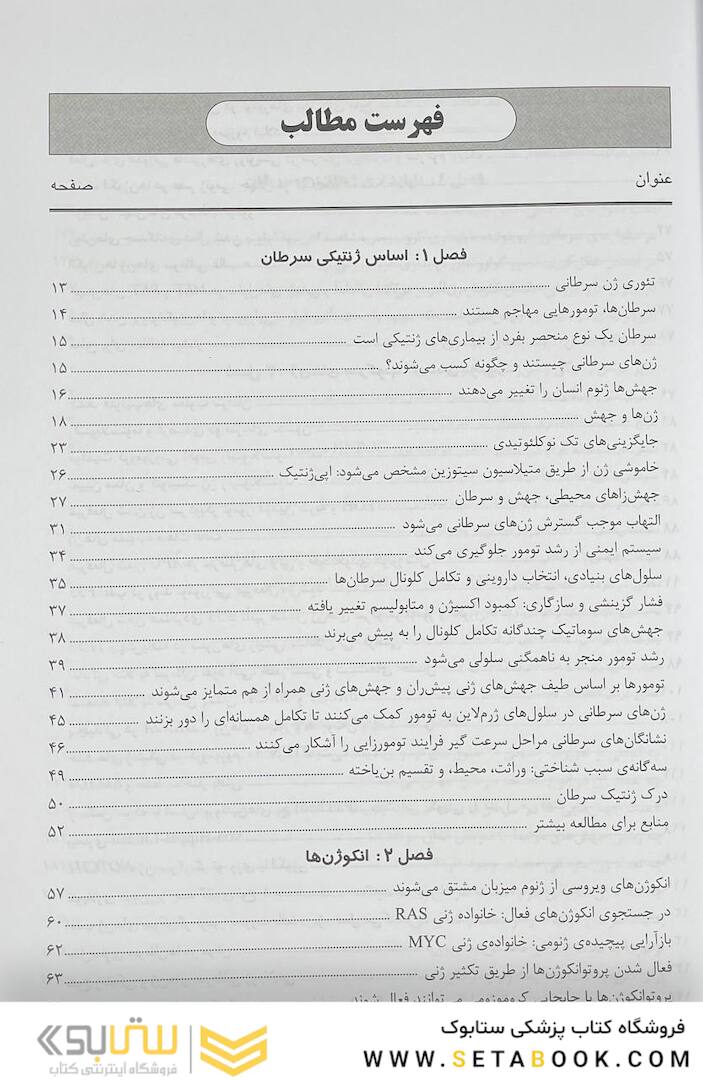 فهرست مطالب
عنوان صفحه
فصل ۱: اساس ژنتیکی سرطان
تئوری ژن سرطانی ۱۳
سرطان‌ها، تومورهایی مهاجم هستند ۱۴
سرطان یک نوع منحصر بفرد از بیماری‌های ژنتیکی است ۱۵
ژن‌های سرطانی چیستند و چگونه کسب می‌شوند؟ ۱۵
جهش‌ها ژنوم انسان را تغییر می‌دهند ۱۶
ژن‌ها و جهش ۱۸
جایگزینی‌های تک نوکلئوتیدی ۲۳
خاموشی ژن از طریق متیلاسیون سیتوزین مشخص می‌شود: اپی‌ژنتیک ۲۶
جهش‌زاهای محیطی، جهش و سرطان ۲۷
التهاب موجب گسترش ژن‌های سرطانی می‌شود ۳۱
سیستم ایمنی از رشد تومور جلوگیری می‌کند ۳۴
سلول‌های بنیادی، انتخاب داروینی و تکامل کلونال سرطان‌ها ۳۵
فشار گزینشی و سازگاری: کمبود اکسیژن و متابولیسم تغییر یافته ۳۷
جهش‌های سوماتیک چندگانه تکامل کلونال را به پیش می‌برند ۳۸
رشد تومور منجر به ناهمگنی سلولی می‌شود ۳۹
تومورها بر اساس طیف جهش‌های ژنی پیش‌ران و جهش‌های ژنی همراه از هم متمایز می‌شوند ۴۱
ژن‌های سرطانی در سلول‌های ژرم‌لاین به تومور کمک می‌کنند تا تکامل همسانه‌ای را دور بزنند ۴۵
نشانگان‌های سرطانی مراحل سرعت گیر فرایند تومورزایی را آشکار می‌کنند ۴۶
سه‌گانه‌ی سبب شناختی: وراثت، محیط، و تقسیم بن‌یاخته ۴۹
درک ژنتیک سرطان ۵۰
منابع برای مطالعه بیشتر ۵۲
فصل ۲: انکوژن‌ها
انکوژن‌های ویروسی از ژنوم میزبان مشتق می‌شوند ۵۷
در جستجوی انکوژن‌های فعال: خانواده ژنی RAS ۶۰
بازآرایی پیچیده‌ی ژنومی: خانواده‌ی ژنی MYC ۶۲
فعال شدن پروتوانکوژن‌ها از طریق تکثیر ژنی ۶۳
پروتوانکوژن‌ها با جابجایی کروموزومی می‌توانند فعال شوند
فروشگاه کتاب پزشکی ستابوک
WWW.SETABOOK.COM
ستابوک
فروشگاه اینترنتی کتاب